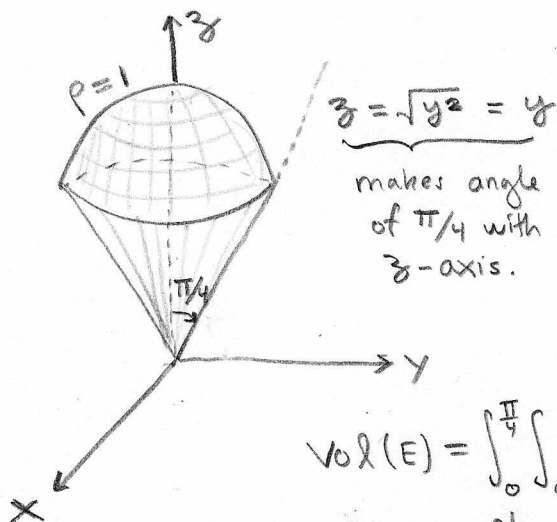 z
ρ=1
z = √y² = y
makes angle
of π/4 with
z-axis.
π/4
y
x
Vol(E) = ∫₀^{π/4} ∫